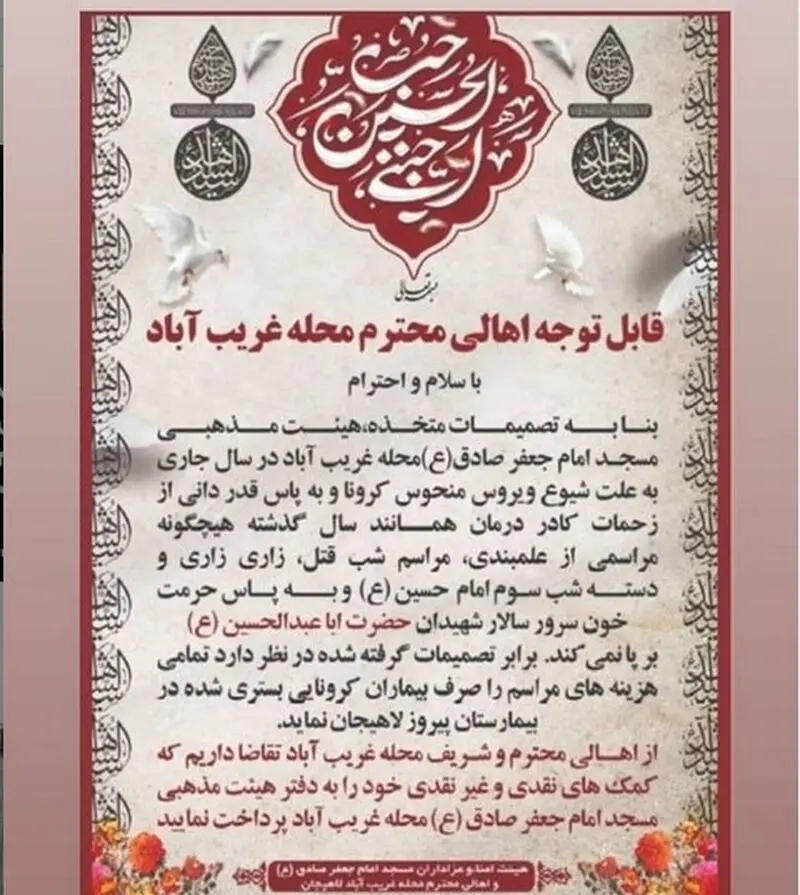 حب الحسین
اجننی
بسمه تعالی
قابل توجه اهالی محترم محله غریب آباد
با سلام و احترام
بنا به تصمیمات متخذه،هیئت مذهبی
مسجد امام جعفر صادق(ع)محله غریب آباد در سال جاری
به علت شیوع ویروس منحوس کرونا و به پاس قدر دانی از
زحمات کادر درمان همانند سال گذشته هیچگونه
مراسمی از علمبندی، مراسم شب قتل، زاری زاری و
دسته شب سوم امام حسین (ع) و به پاس حرمت
خون سرور سالار شهیدان حضرت ابا عبدالحسین (ع)
بر پا نمی کند. برابر تصمیمات گرفته شده در نظر دارد تمامی
هزینه های مراسم را صرف بیماران کرونایی بستری شده در
بیمارستان پیروز لاهیجان نماید.
از اهالی محترم و شریف محله غریب آباد تقاضا داریم که
کمک های نقدی و غیر نقدی خود را به دفتر هیئت مذهبی
مسجد امام جعفر صادق (ع) محله غریب آباد پرداخت نمایید
هیئت امنا،و عزاداران مسجد امام جعفر صادق (ع)
و اهالی محترم محله غریب آباد لاهیجان